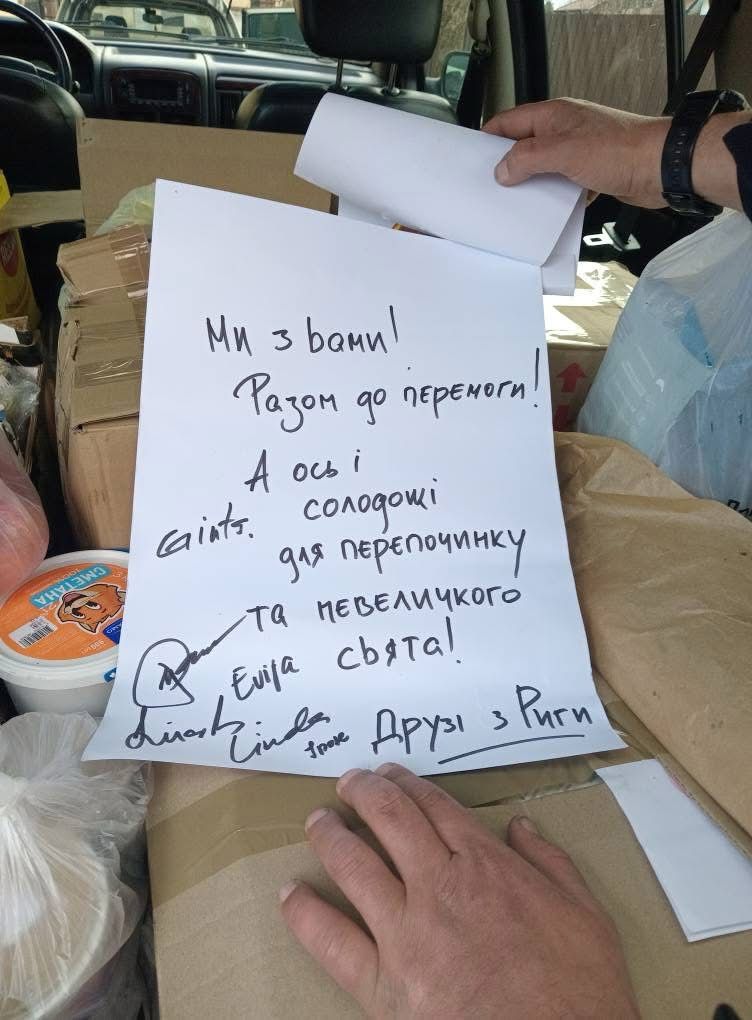 Ми з вами!
Разом до перемоги!
А ось і
солодощі
Gints.
для перепочинку
та невеличкого
Evija свята!
Linda
Друзі з Риги
СМЕТАНА